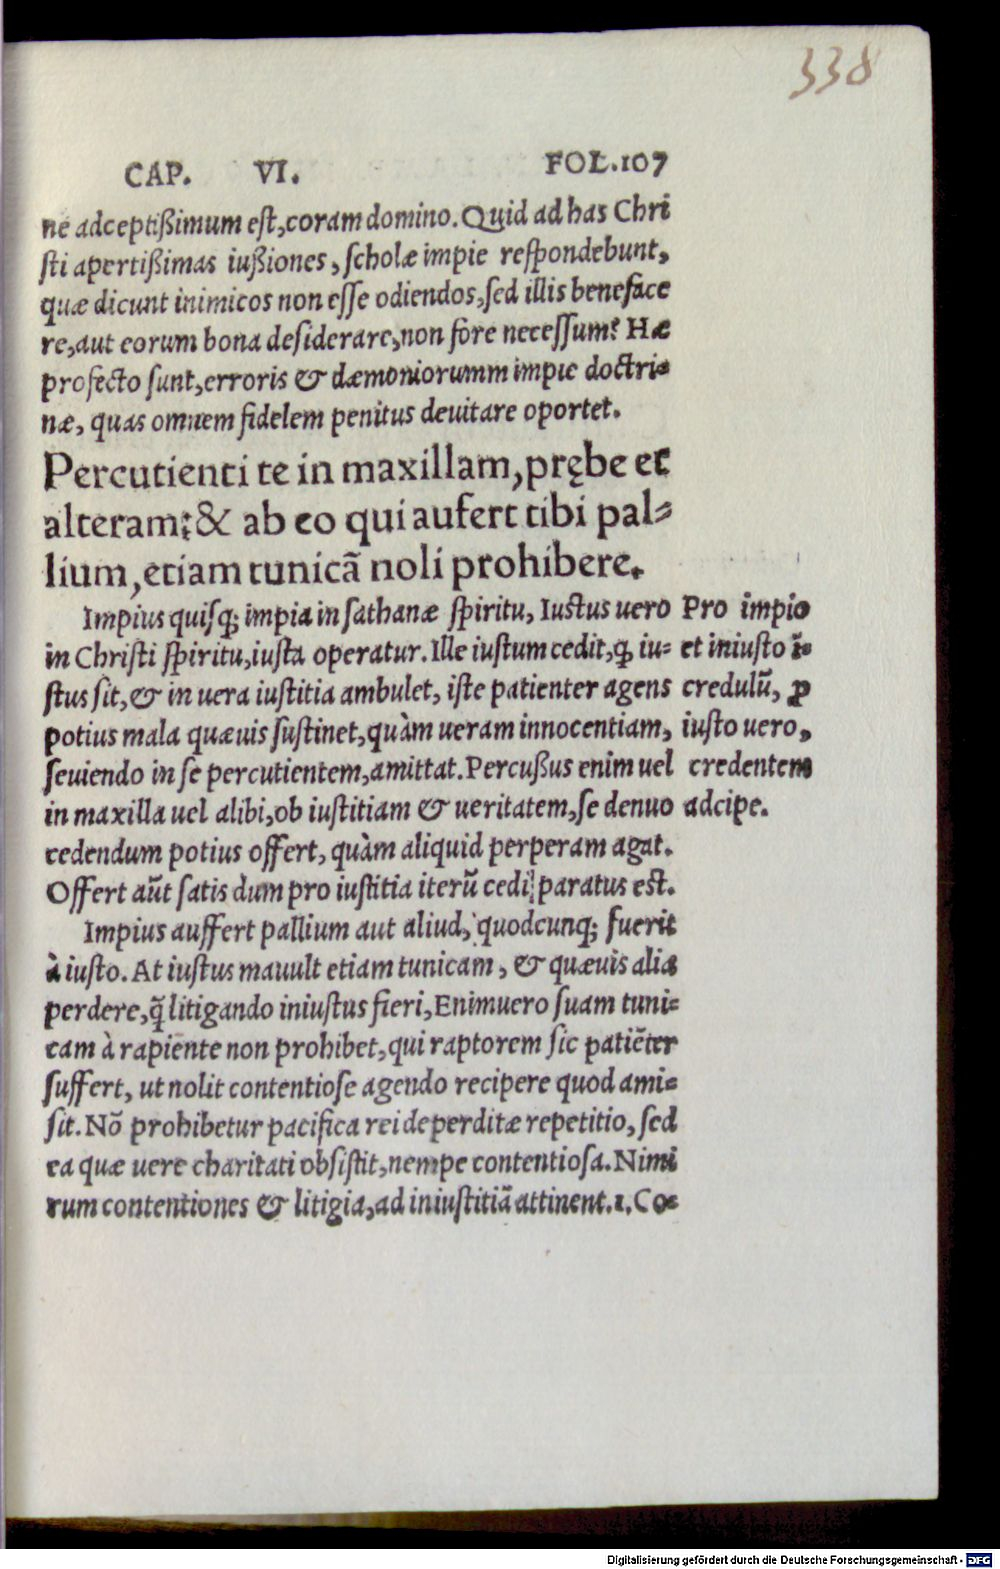 338
CAP. VI. FOL.107
ne adceptißimum est, coram domino. Quid ad has Chri
sti apertißimas iußiones, scholæ impie respondebunt,
quæ dicunt inimicos non esse odiendos, sed illis beneface
re, aut eorum bona desiderare, non fore necessum? Hæ
profecto sunt, erroris & dæmoniorumm impie doctri⸗
næ, quas omnem fidelem penitus deuitare oportet.
Percutienti te in maxillam, prębe et
alteram: & ab eo qui aufert tibi pal⸗
lium, etiam tunicã noli prohibere.
Impius quisq; impia in sathanæ spiritu, Iustus uero
in Christi spiritu, iusta operatur. Ille iustum cedit, ꝙ iu⸗
stus sit, & in uera iustitia ambulet, iste patienter agens
potius mala quæuis sustinet, quàm ueram innocentiam,
seuiendo in se percutientem, amittat. Percußus enim uel
in maxilla uel alibi, ob iustitiam & ueritatem, se denuo
cedendum potius offert, quàm aliquid perperam agat.
Offert aũt satis dum pro iustitia iterũ cedi paratus est.
Pro impio
et iniusto ĩ⸗
credulũ, ꝓ
iusto uero,
credentem
adcipe.
Impius auffert pallium aut aliud, quodcunq; fuerit
à iusto. At iustus mauult etiam tunicam, & quæuis alia
perdere, q̃ litigando iniustus fieri, Enimuero suam tuni⸗
cam à rapiente non prohibet, qui raptorem sic patiẽter
suffert, ut nolit contentiose agendo recipere quod ami⸗
sit. Nõ prohibetur pacifica rei deperditæ repetitio, sed
ea quæ uere charitati obsistit, nempe contentiosa. Nimi
rum contentiones & litigia, ad iniustitiã attinent. 1. Co⸗
Digitalisierung gefördert durch die Deutsche Forschungsgemeinschaft - DFG